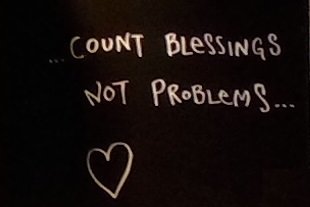 ...COUNT BLESSINGS
NOT PROBLEMS...